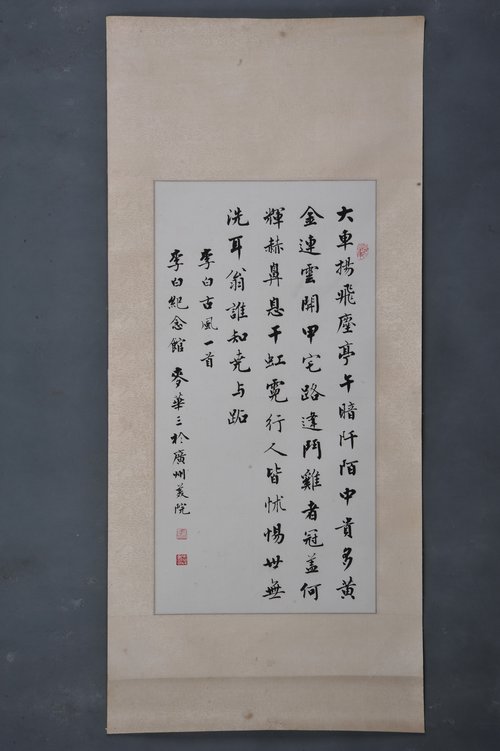 大車揚飛塵亭午暗阡陌中貴多黃
金連雲開甲宅路逢鬥雞者冠蓋何
輝赫鼻息干虹霓行人皆怵惕世無
洗耳翁誰知堯与跖
李白古風一首
李白紀念館 麥華三於廣州美院